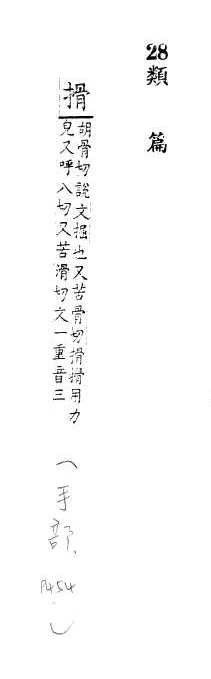 28
類篇
搰
胡骨切說文掘也又苦骨切搰搰用力
皃又呼八切又苦滑切文一重音三
(手部、
P454
)